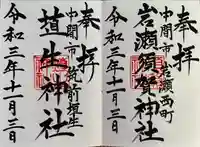 奉拝
中間市岩瀬西町
岩瀬須賀神社
令和三年十一月三日
奉拝
中間市筑前垣生
埴生神社
令和三年十一月三日